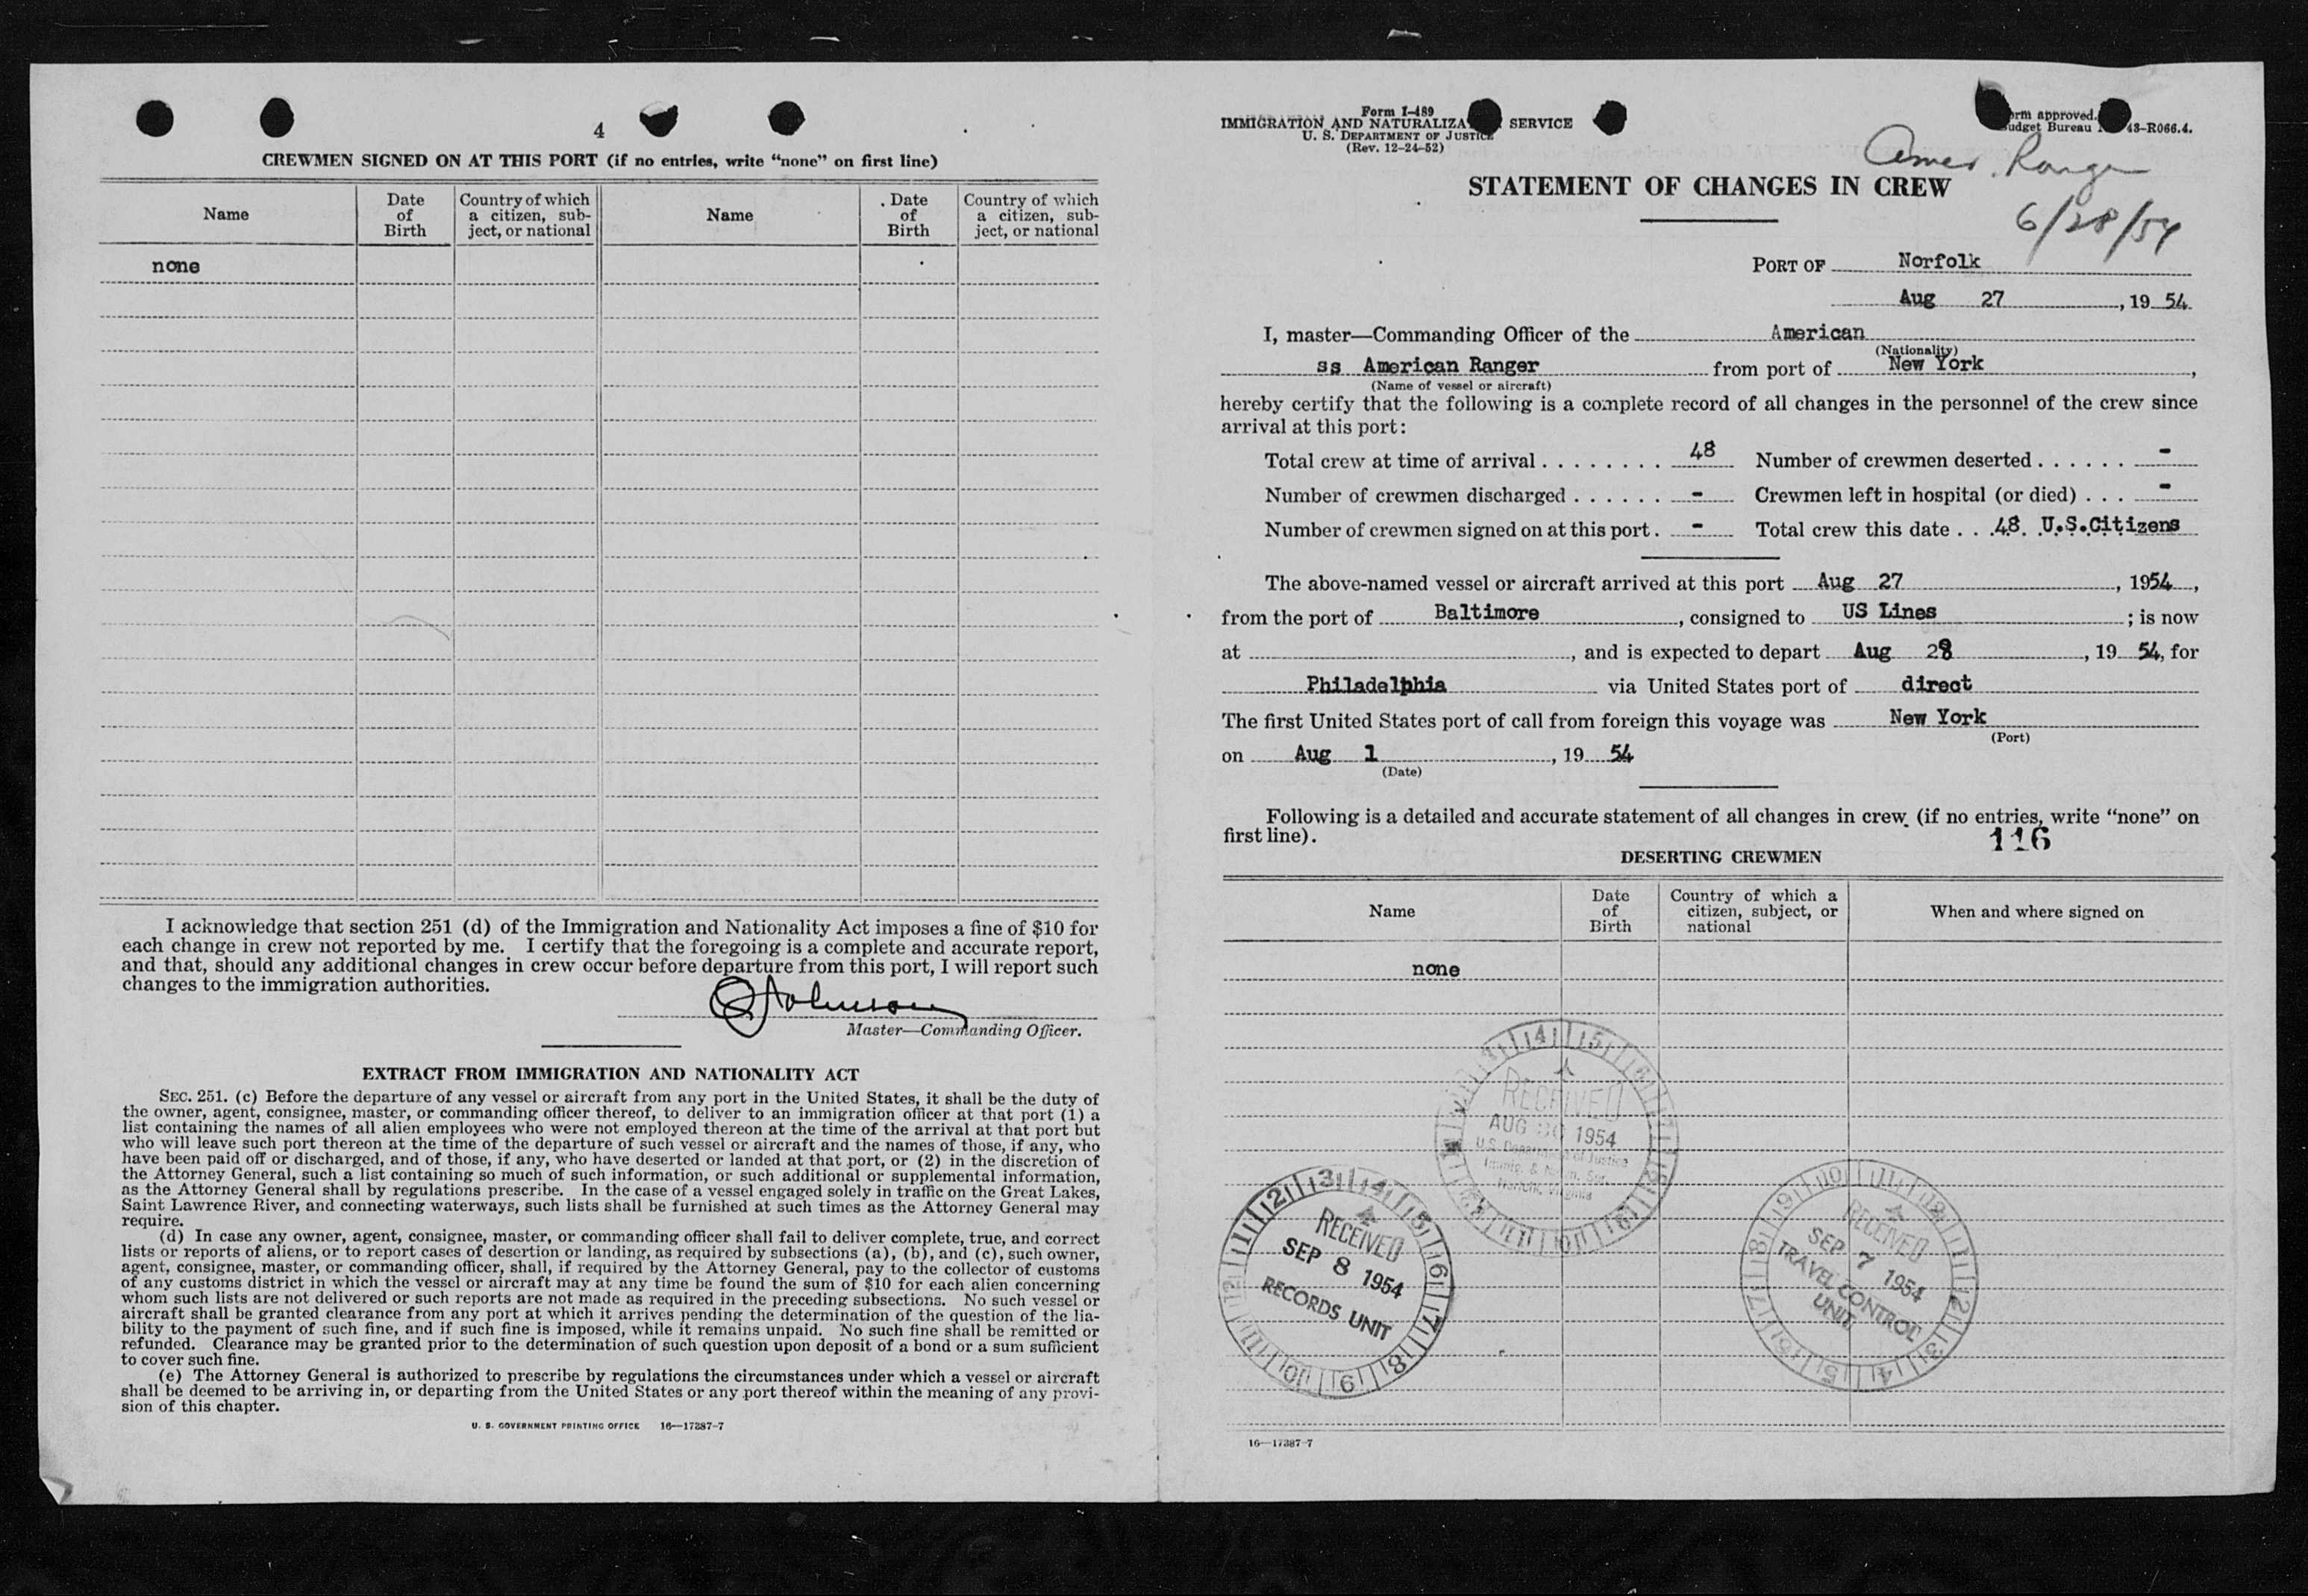 4
CREWMEN SIGNED ON AT THIS PORT (if no entries, write “none” on first line)
Name
Date of Birth
Country of which a citizen, sub-ject, or national
Name
Date of Birth
Country of which a citizen, sub-ject, or national
none
I acknowledge that section 251 (d) of the Immigration and Nationality Act imposes a fine of $10 for
each change in crew not reported by me. I certify that the foregoing is a complete and accurate report,
and that, should any additional changes in crew occur before departure from this port, I will report such
changes to the immigration authorities.
Johnson
Master—Commanding Officer.
EXTRACT FROM IMMIGRATION AND NATIONALITY ACT
SEC. 251. (c) Before the departure of any vessel or aircraft from any port in the United States, it shall be the duty of
the owner, agent, consignee, master, or commanding officer thereof, to deliver to an immigration officer at that port (1) a
list containing the names of all alien employees who were not employed thereon at the time of the arrival at that port but
who will leave such port thereon at the time of the departure of such vessel or aircraft and the names of those, if any, who
have been paid off or discharged, and of those, if any, who have deserted or landed at that port, or (2) in the discretion of
the Attorney General, such a list containing so much of such information, or such additional or supplemental information,
as the Attorney General shall by regulations prescribe. In the case of a vessel engaged solely in traffic on the Great Lakes,
Saint Lawrence River, and connecting waterways, such lists shall be furnished at such times as the Attorney General may
require.
(d) In case any owner, agent, consignee, master, or commanding officer shall fail to deliver complete, true, and correct
lists or reports of aliens, or to report cases of desertion or landing, as required by subsections (a), (b), and (c), such owner,
agent, consignee, master, or commanding officer, shall, if required by the Attorney General, pay to the collector of customs
of any customs district in which the vessel or aircraft may at any time be found the sum of $10 for each alien concerning
whom such lists are not delivered or such reports are not made as required in the preceding subsections. No such vessel or
aircraft shall be granted clearance from any port at which it arrives pending the determination of the question of the lia-
bility to the payment of such fine, and if such fine is imposed, while it remains unpaid. No such fine shall be remitted or
refunded. Clearance may be granted prior to the determination of such question upon deposit of a bond or a sum sufficient
to cover such fine.
(e) The Attorney General is authorized to prescribe by regulations the circumstances under which a vessel or aircraft
shall be deemed to be arriving in, or departing from the United States or any port thereof within the meaning of any provi-
sion of this chapter.
U. S. GOVERNMENT PRINTING OFFICE 16—17387-7
Form I-489
IMMIGRATION AND NATURALIZA SERVICE
U. S. DEPARTMENT OF JUSTICE
(Rev. 12-24-52)
orm approved.
udget Bureau 43-R066.4.
Amer. Ranger
STATEMENT OF CHANGES IN CREW
6/28/54
PORT OF Norfolk
Aug 27, 19 54
I, master—Commanding Officer of the American
(Nationality)
ss American Ranger from port of New York,
(Name of vessel or aircraft)
hereby certify that the following is a complete record of all changes in the personnel of the crew since
arrival at this port:
Total crew at time of arrival . . . . . . . . 48 Number of crewmen deserted . . . . . . -
Number of crewmen discharged . . . . . . - Crewmen left in hospital (or died) . . . -
Number of crewmen signed on at this port . - Total crew this date . . . 48 U.S.Citizens
The above-named vessel or aircraft arrived at this port Aug 27, 1954,
from the port of Baltimore, consigned to US Lines; is now
at , and is expected to depart Aug 28, 19 54, for
Philadelphia via United States port of direct
The first United States port of call from foreign this voyage was New York
(Port)
on Aug 1, 19 54
(Date)
Following is a detailed and accurate statement of all changes in crew (if no entries, write “none” on
first line).
116
DESERTING CREWMEN
Name
Date of Birth
Country of which a citizen, subject, or national
When and where signed on
none
RECEIVED
AUG 30 1954
U.S. Department of Justice
Immig. & Natn. Ser.
Norfolk, Virginia
RECEIVED
SEP 8 1954
RECORDS UNIT
RECEIVED
SEP 7 1954
TRAVEL CONTROL
UNIT
16—17387-7